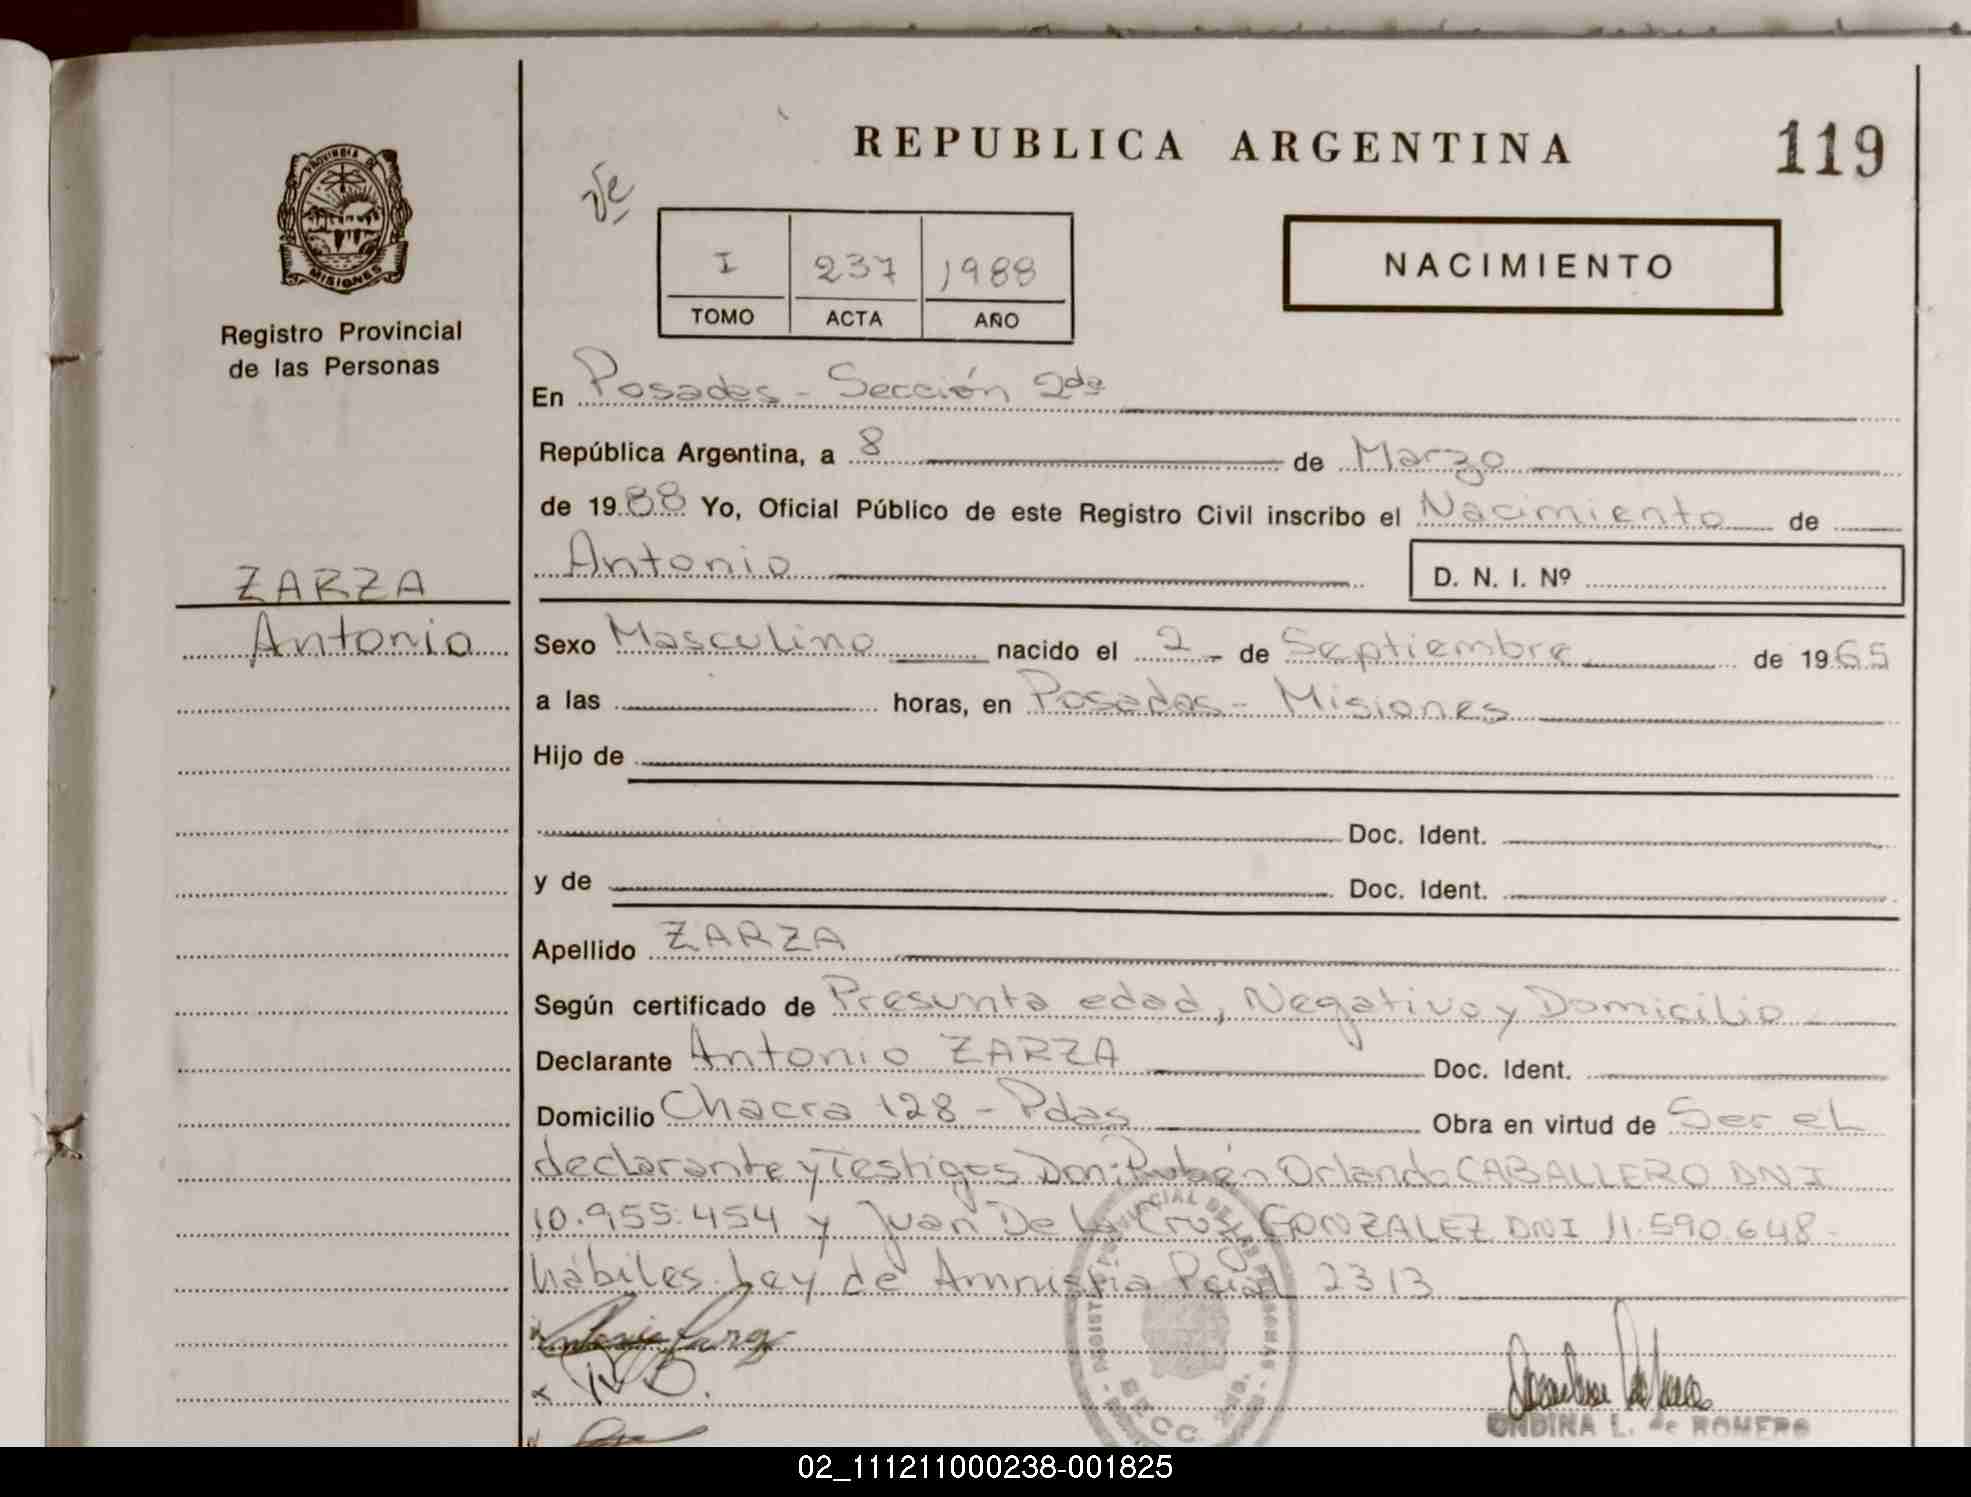 REPUBLICA ARGENTINA
119
PROVINCIA DE MISIONES
Registro Provincial
de las Personas
I 237 1988
TOMO ACTA AÑO
NACIMIENTO
En Posadas - Sección 2da
República Argentina, a 8 de Marzo
de 1988 Yo, Oficial Público de este Registro Civil inscribo el Nacimiento de
Antonio D. N. I. Nº
ZARZA
Antonio
Sexo Masculino nacido el 2 de Septiembre de 1965
a las horas, en Posadas - Misiones
Hijo de
Doc. Ident.
y de Doc. Ident.
Apellido ZARZA
Según certificado de Presunta edad, Negativo y Domicilio
Declarante Antonio ZARZA Doc. Ident.
Domicilio Chacra 128 - Pdas Obra en virtud de Ser el
declarante y Testigos Don: Rubén Orlando CABALLERO DNI
10.955.454 y Juan De la Cruz GONZALEZ DNI 11.590.648-
hábiles. Ley de Amnistia Pcial 2313
ONDINA L. de ROMERO
02_111211000238-001825